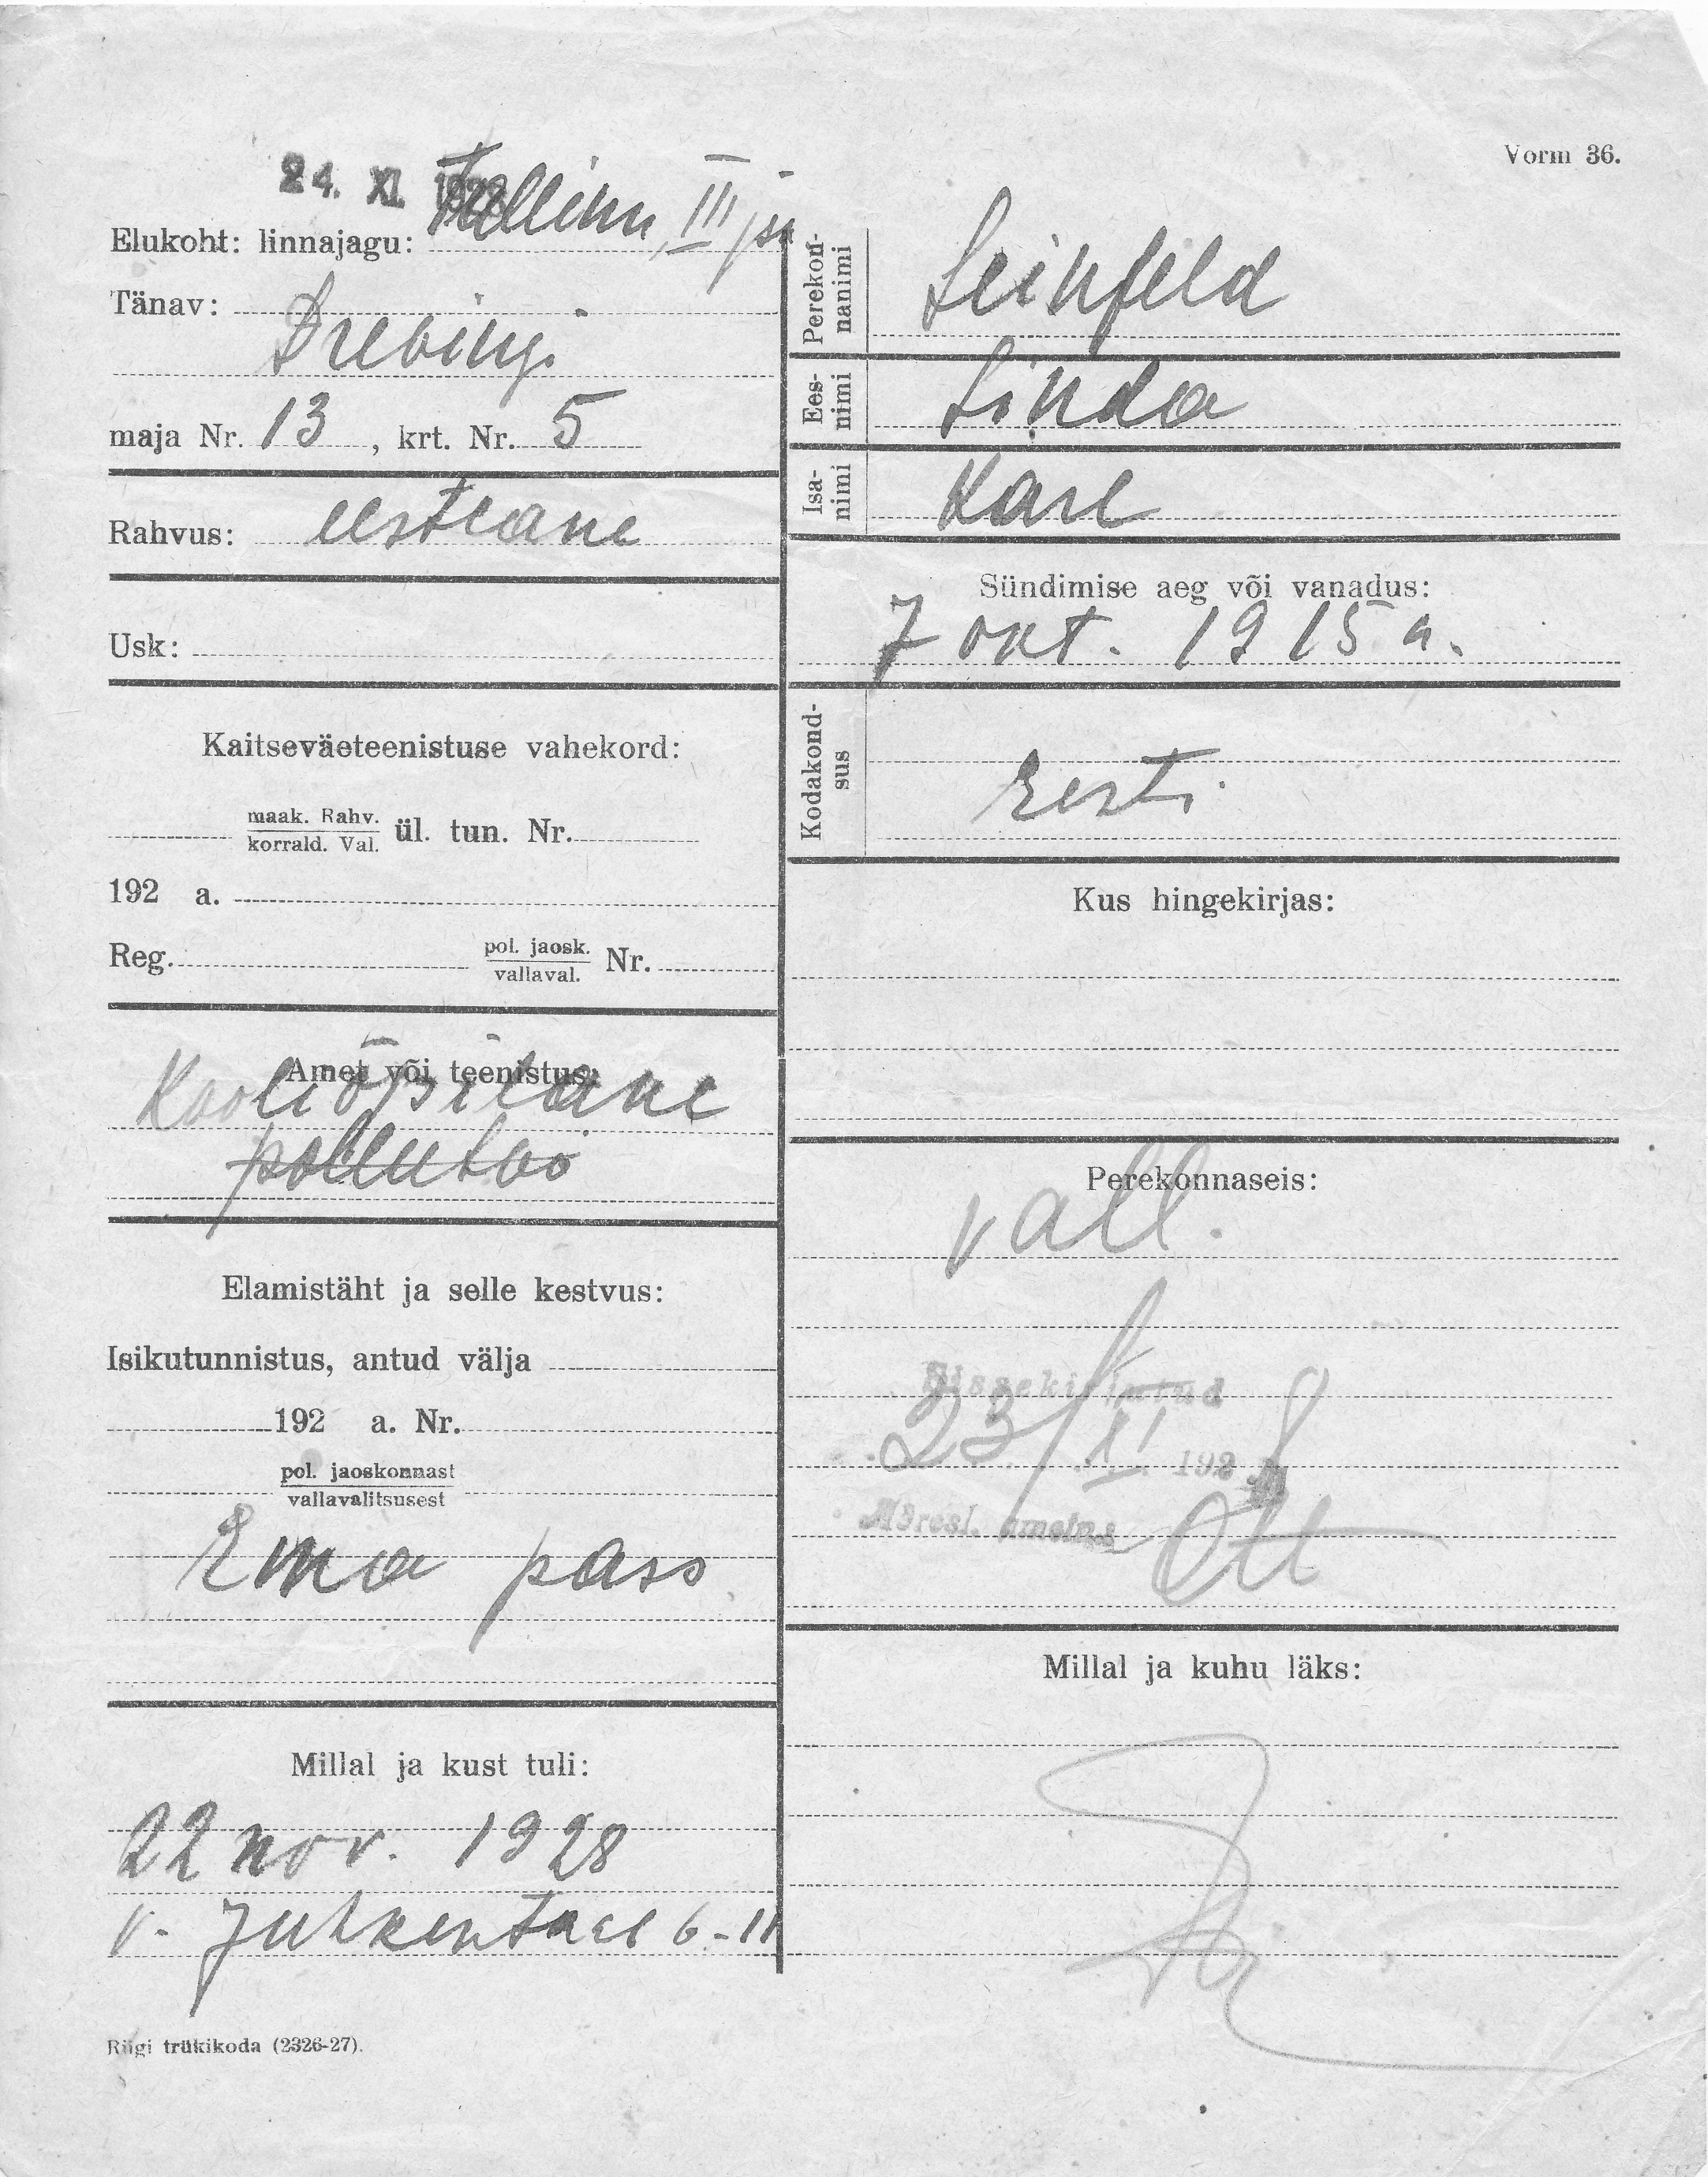 Vorm 36.
24. XI. 1928
Elukoht: linnajagu: Tallinn, III js
Tänav:
Drebingi
maja Nr. 13, krt. Nr. 5
Rahvus: eestlane
Usk:
Kaitseväeteenistuse vahekord:
maak. Rahv.
korrald. Val. ül. tun. Nr.
192 a.
Reg. pol. jaosk.
vallaval. Nr.
Amet või teenistus:
Kooliõpilane
põllutöö
Elamistäht ja selle kestvus:
Isikutunnistus, antud välja
192 a. Nr.
pol. jaoskonnast
vallavalitsusest
Ema pass
Millal ja kust tuli:
22 nov. 1928
v. Juhkentael 6-11
Riigi trükikoda (2326-27).
Perekon-
nanimi
Leinfeld
Ees-
nimi
Linda
Isa-
nimi
Karl
Sündimise aeg või vanadus:
7 okt. 1915 a.
Kodakond-
sus
Eesti
Kus hingekirjas:
Perekonnaseis:
vall.
Sissekirjutud
23/XI 1928
Adresl. ametn. Ott
Millal ja kuhu läks: